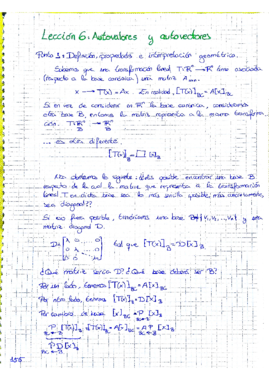 Lección 6: Autovalores y autovectores
Punto 1: Definición, propiedades e interpretación geométrica.
Sabemos que una transformación lineal T: ℝⁿ → ℝⁿ tiene asociada
(respecto a la base canónica) una matriz A
x → T(x) = Ax. En realidad, [T(x)]_BC = A[x]_BC
Si en vez de considerar en ℝⁿ la base canónica, consideramos
otra base B, entonces la matriz que representa a la misma transforma-
ción. T: ℝⁿ → ℝⁿ
B B
... es otra diferente
[T(x)]_B = [ ] [x]_B
Nos planteamos lo siguiente: ¿Será posible encontrar una base B
respecto de la cual la matriz que representa a la transformación
lineal T en dicha base sea lo más sencilla posible, más concretamente,
sea diagonal??
Si eso fuera posible, tendríamos una base B = {v₁, v₂, ..., vₙ} y una
matriz diagonal D.
tal que [T(x)]_B = D[x]_B
¿Qué matriz sería D? ¿Qué base debería ser B?
Por un lado, tenemos [T(x)]_BC = A[x]_BC
Por otro lado, tenemos [T(x)]_B = D[x]_B
Por cambio de base [x]_BC = P [x]_B
P [T(x)]_B = [T(x)]_BC = A[x]_BC = A P [x]_B
P D [x]_B